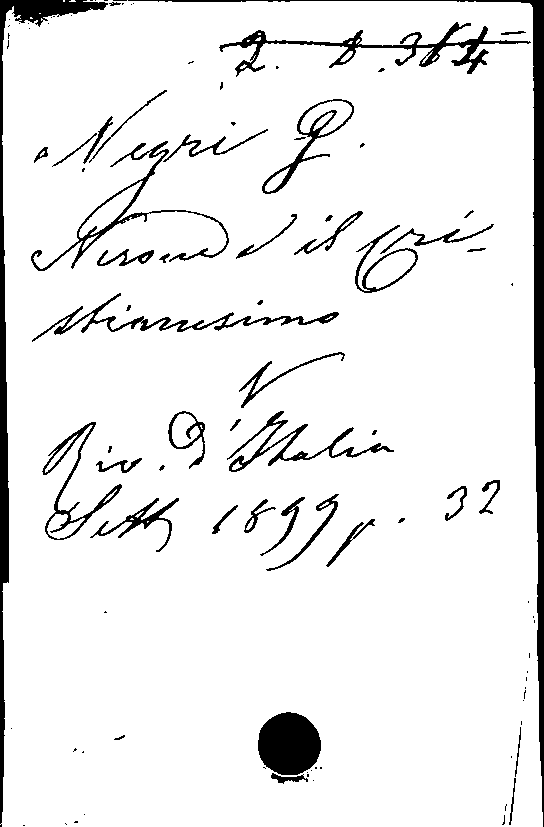 Negri G.
Nerone e il Cri-
stianesimo
V
Riv. d'Italia
Sett 1899 p. 32